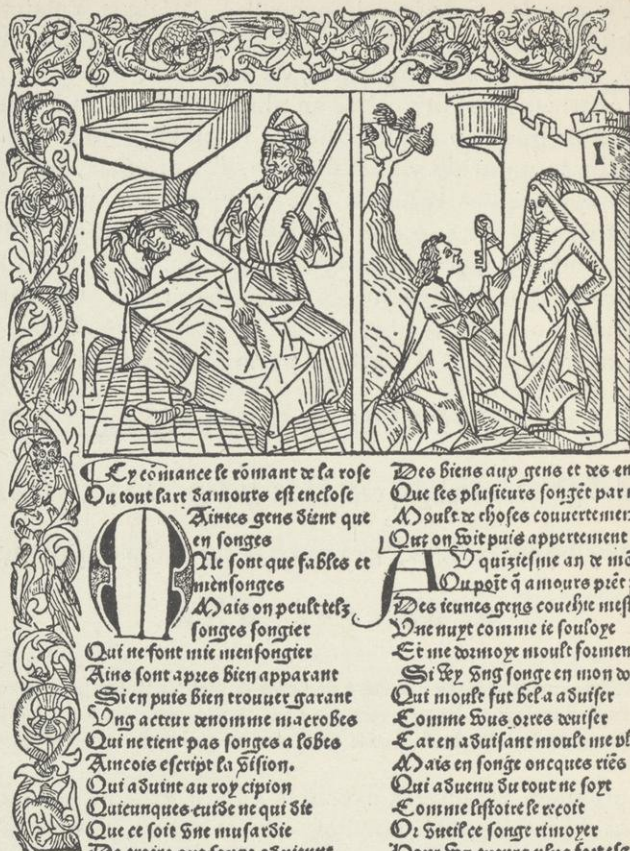 Cy cõmance le rõmant de la rose
Ou tout lart damours est enclose
Maintes gens dient que
en songes
Ne sont que fables et
mẽnsonges
Mais on peult telz
songes songier
Qui ne font mie mensongier
Ains sont apres bien apparant
Si en puis bien trouuer garant
Vng acteur denomme macrobes
Qui ne tient pas songes a lobes
Aincois escript la vision.
Qui aduint au roy cipion
Quicunques cuide ne qui die
Que ce soit vne musardie
Des biens aux gens et des en
Que les plusieurs songẽt par
Moult de choses couuertemen
Que on voit puis appertement
AV quiziesme an de mõ
Ou põit q̃ amours prẽt
Des ieunes gens
Vne nuyt comme ie souloye
Et me dormoye moult formen
Si vey vng songe en mon do
Qui moult fut bel a aduiser
Comme vous orres deuiser
Car en aduisant moult me pl
Mais en songe oncques riẽs
Qui aduenu du tout ne soyt
Comme listoire le recoit
Or vueil ce songe rimoyer